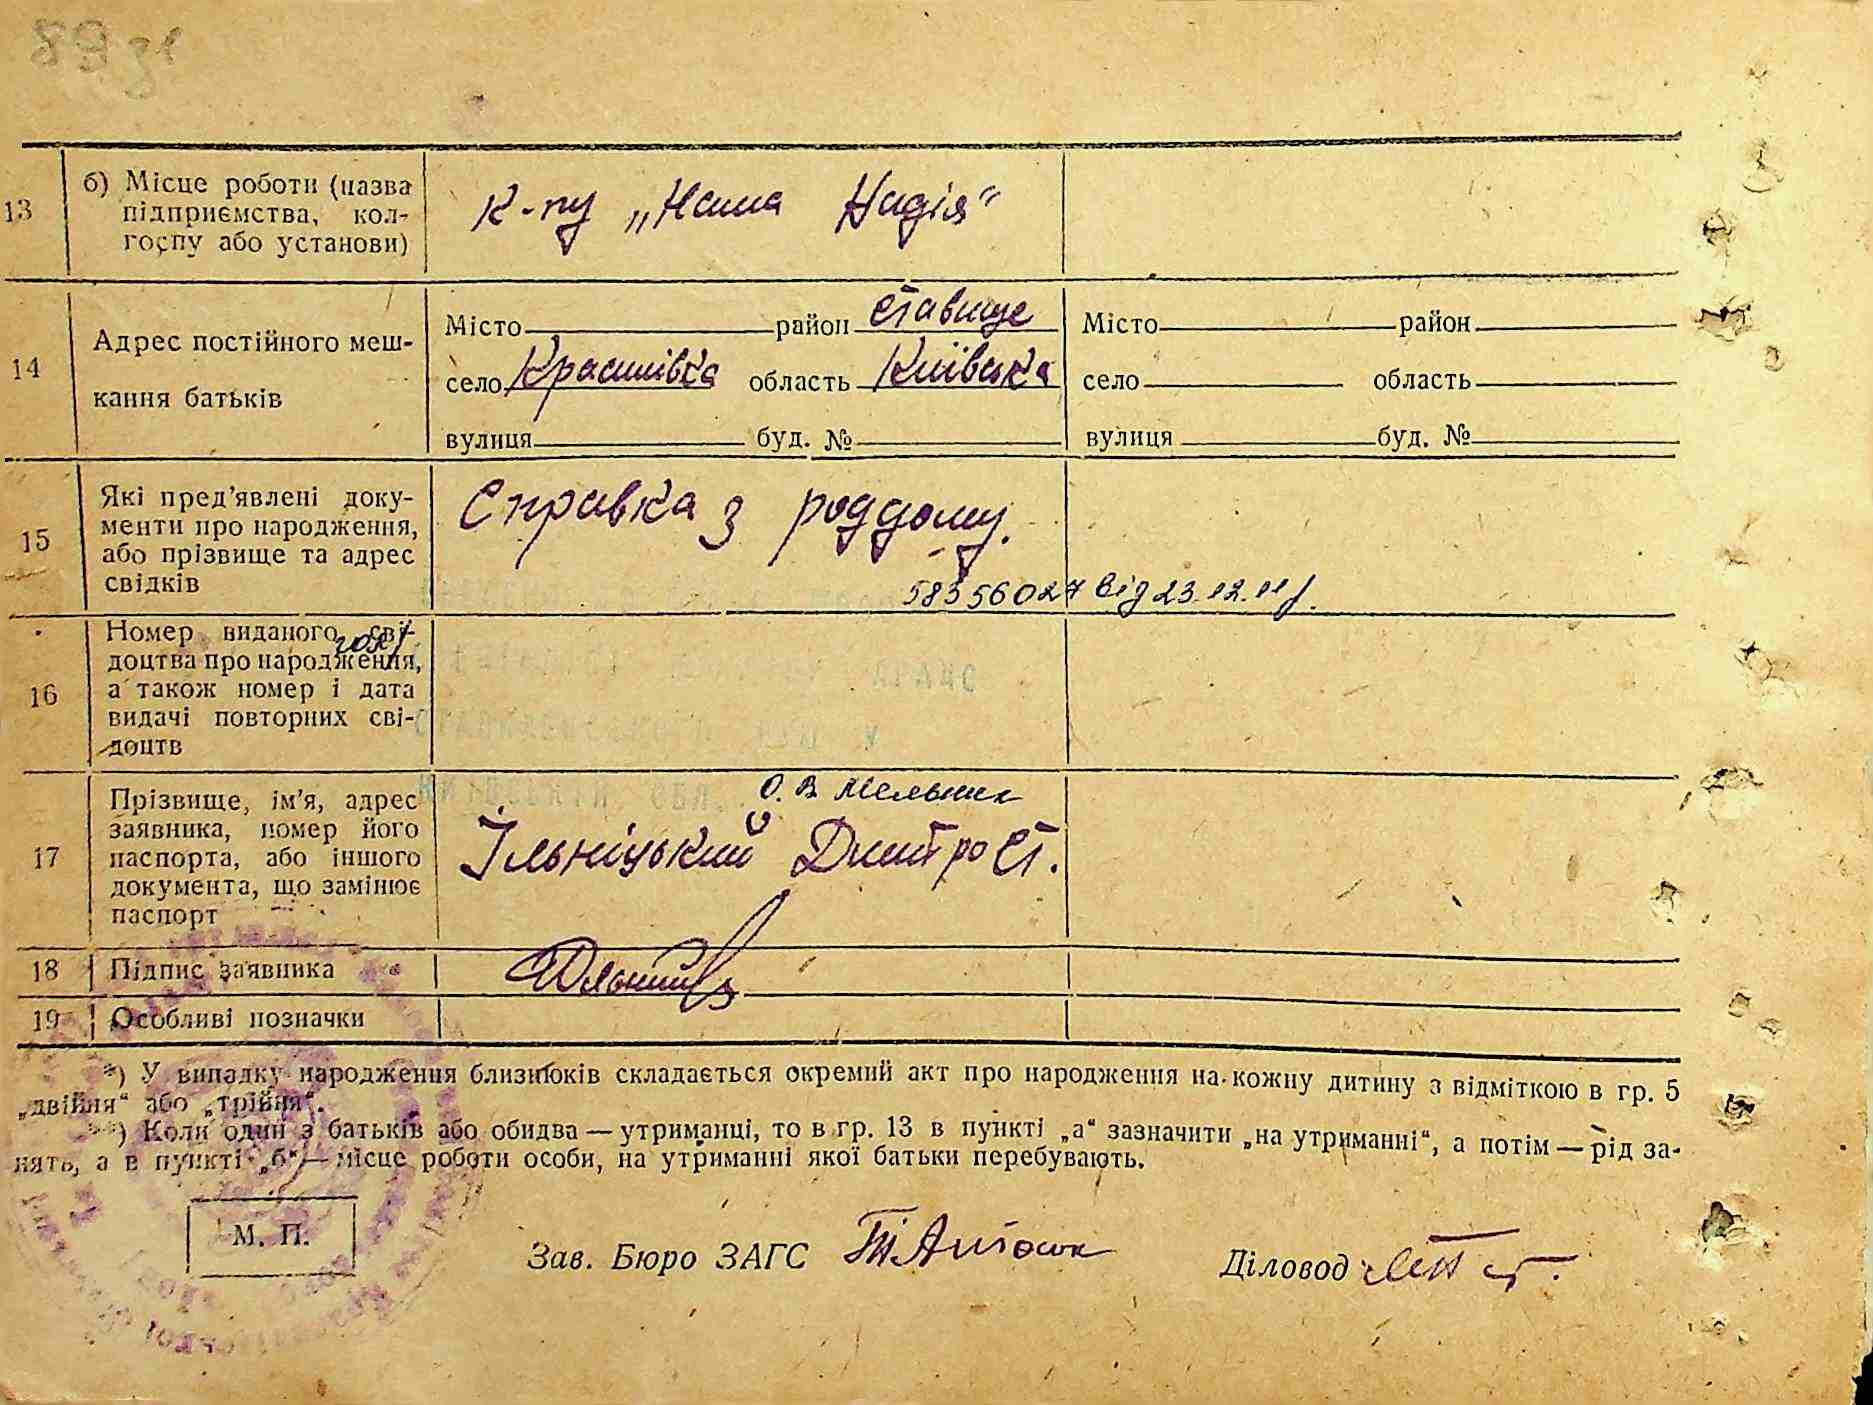 13 б) Місце роботи (назва
підприємства, кол-
госпу або установи)
к-пу „Наша Надія“
14 Адрес постійного меш-
кання батьків
Місто район Ставище
село Красилівка область Київська
вулиця буд. №
Місто район
село область
вулиця буд. №
15 Які пред'явлені доку-
менти про народження,
або прізвище та адрес
свідків
Справка з роддому.
58356027 від 23.12.11р.
16 Номер виданого сві-
доцтва про народження,
а також номер і дата
видачі повторних сві-
доцтв
17 Прізвище, ім'я, адрес
заявника, номер його
паспорта, або іншого
документа, що замінює
паспорт
О. В. Мельник
Ільніцький Дмитро Ст.
18 Підпис заявника
19 Особливі позначки
*) У випадку народження близнюків складається окремий акт про народження на кожну дитину з відміткою в гр. 5
„двійня“ або „трійня“.
**) Коли один з батьків або обидва — утриманці, то в гр. 13 в пункті „а“ зазначити „на утриманні“, а потім — рід за-
нять, а в пункті „б“ — місце роботи особи, на утриманні якої батьки перебувають.
М. П.
Зав. Бюро ЗАГС
Діловод